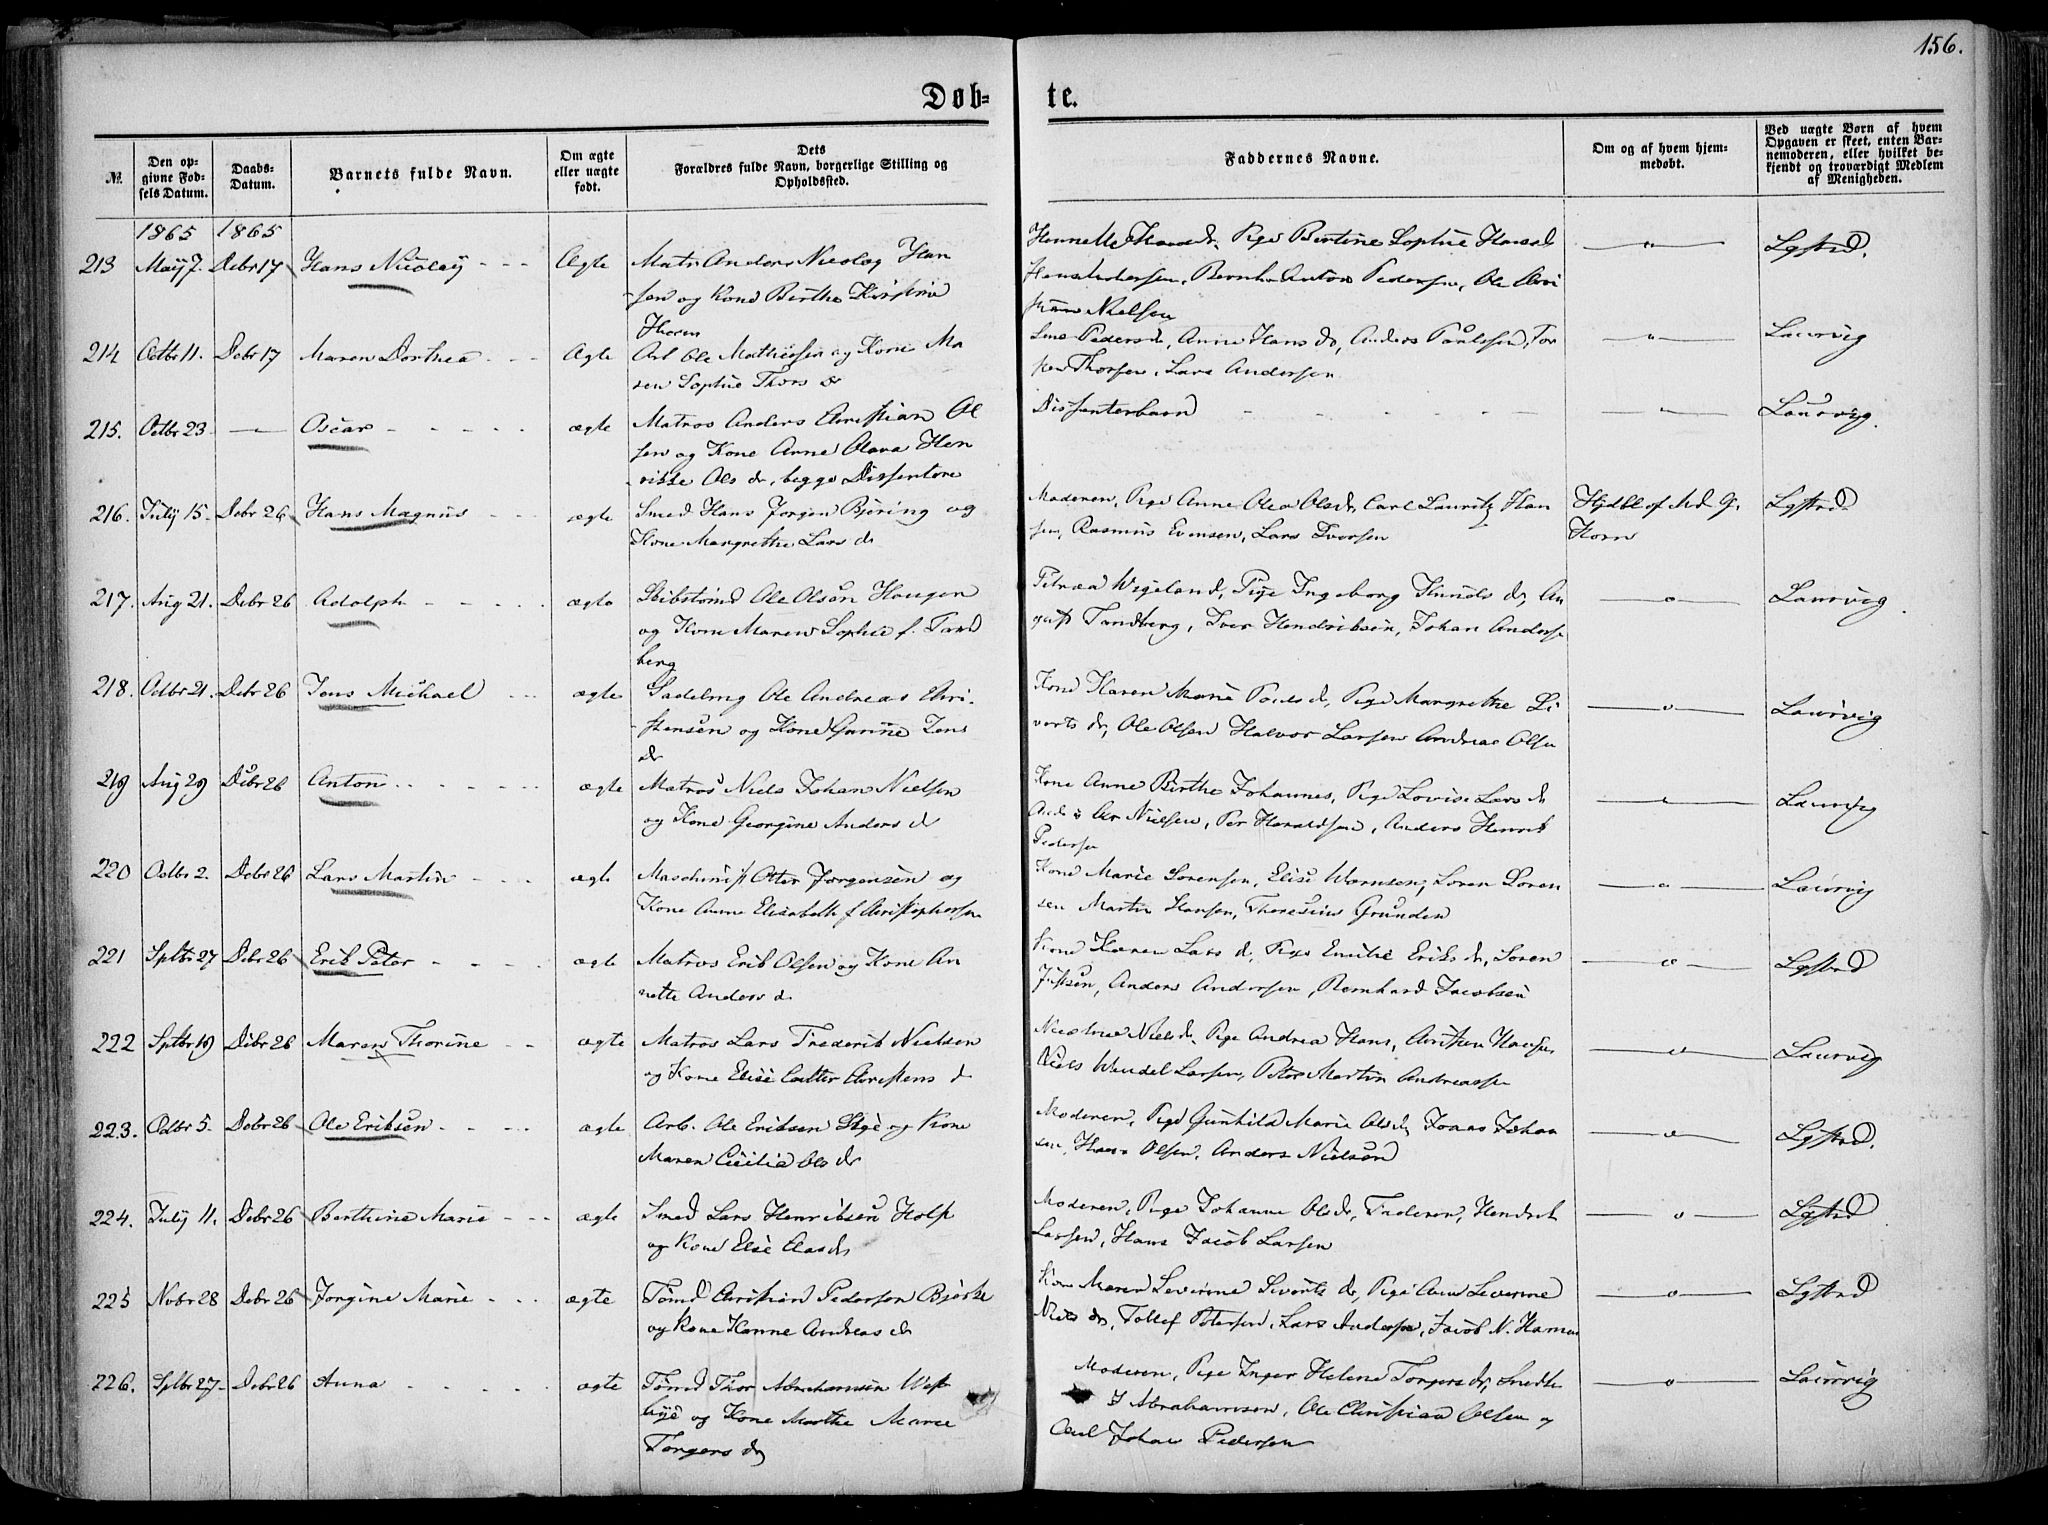 156.
Døb-
te.
№
Den op-
givne Fød-
sels Datum.
Daabs-
Datum.
Barnets fulde Navn.
Om ægte
eller uægte
født.
Dets
Forældres fulde Navn, borgerlige Stilling og
Opholdssted.
Faddernes Navne.
Om og af hvem hjem-
medøbt.
Ved uægte Børn af hvem
Opgaven er skeet, enten Bar-
nemoderen, eller hvilket be-
kjendt og troværdigt Medlem
af Menigheden.
1865 1865
213 May 7. Debr 17 Hans Nicolay Ægte
Matr Anders Nicolay Han
sen og Kone Birthe Kirstine
Thoren
Pige Bertine Sophie
Pedersen, Ole Chri
Nielsen
Lgstrd.
214 Octbr 11. Debr 17 Maren Dorthea Ægte
Arb Ole Mathiesen og Kone Ma
ren Sophie Thors dr
Pedersdr, Anne Hansdr, Anders Paulsen, Tor
Thorsen, Lars Andersen
Laurvig
215. Octbr 23 Oscar ægte
Matros Anders Christian Ol
sen og Kone Anne Olava Hen
rikke Olsdr, begge Dissentere
Dissenterbarn
Laurvig.
216. July 15 Debr 26 Hans Magnus ægte
Smed Hans Jørgen Bjøring og
Kone Margrethe Larsdr
Moderen, Pige Anne Olea Olsdr, Carl Lauritz Han
sen, Rasmus Evensen, Lars Iversen
Hjdbt af Md G.
Horn
Lgstrd
217. Aug 21. Debr 26 Adolph ægte
Skibstømd Ole Olsen Haugen
og Kone Maren Sophie f. Tand
berg
Petrea Wigeland, Pige Ingeborg Knudsdr, Au
gust Tandberg, Iver Hendriksen, Johan Anderse
Laurvig.
218. Octbr 21. Debr 26 Jens Michael ægte
Sadelmg Ole Andreas Chri-
stensen og Kone Gurine Jens
dr
Kone Karen Marie Poulsdr, Pige Margrethe Si
vertsdr, Ole Olsen Halvor Larsen Andreas Olsen
Laurvig
219 Aug 29 Debr 26 Anton ægte
Matros Niels Johan Nielsen
og Kone Georgine Andersdr
Kone Anne Birthe Johannes, Pige Lovise Larsdr
Nielsen, Per Haraldsen, Anders Henrik
Pedersen
Laurvig
220 Octbr 2. Debr 26 Lars Martin ægte
Maschinist Otter Jørgensen og
Kone Anne Elisabeth f Christophersen
Kone Marie Sørensen, Elise Wornsen, Søren Søren
sen Martin Hansen, Theresius Grunden
Laurvig
221 Sptbr 27 Debr 26 Erik Peter ægte
Matros Erik Olsen og Kone An
nette Andersd
Kone Karen Larsd, Pige Emilie Eriksdr, Søren
Justsen, Anders Andersen, Bernhard Jacobsen
Lgstrd
222 Sptbr 19 Debr 26 Maren Thorine ægte
Matros Lars Frederik Nielsen
og Kone Elise Cathr Christensd
Nicoline Nielsd, Pige Andrea Hans, Christen Hansen
Niels Wendel Larsen, Peter Martin Andreassen
Laurvig
223. Octbr 5. Debr 26 Ole Eriksen ægte
Arb. Ole Eriksen Stge og Kone
Maren Cicilia Olsdr
Moderen, Pige Gunhild Marie Olsdr Jonas Johan
sen, Hans Olsen, Anders Nielsen
Lgstrd.
224. July 11. Debr 26 Berthine Marie ægte
Smed Lars Henriksen Holst
og Kone Else Clasdr
Moderen, Pige Johanne Olsdr, Faderen, Hendrik
Larsen, Hans Jacob Larsen
Lgstrd
225 Novbr 28 Debr 26 Jørgine Marie ægte
Tømd Christian Pedersen Bjerke
og Kone Hanne Andreasdr
Kone Maren Severine Sivertsdr, Pige Anne Severine
Nielsdr, Tollef Petersen, Lars Andersen, Jacob N. Hansen
Lgstrd
226. Sptbr 27 Debr 26 Anna ægte
Tømd Thor Abrahamsen West
bye og Kone Marthe Marie
Torgersdr
Moderen, Pige Inger Helene Torgersdr, Smedk
J Abrahamsen, Ole Christian Olsen og
Carl Johan Pedersen
Laurvig